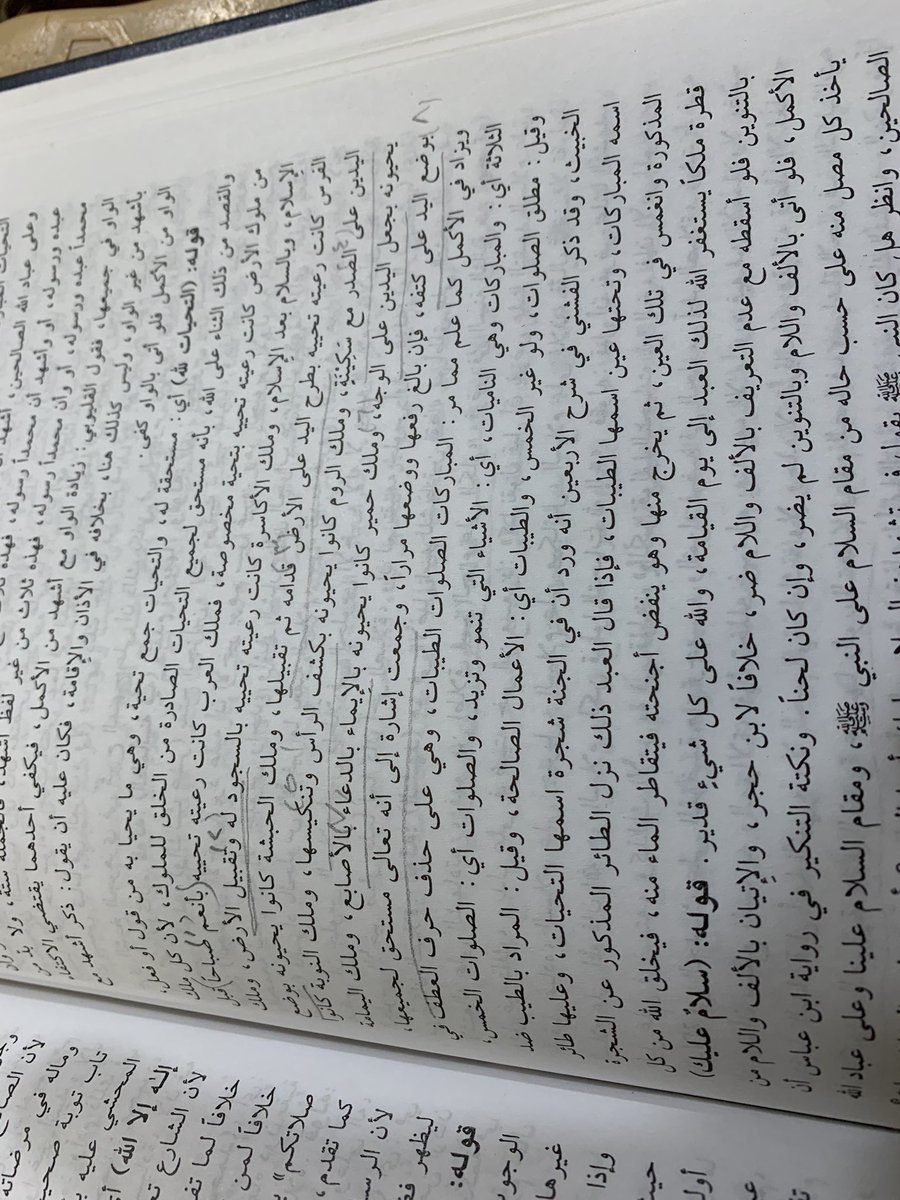 وعلى عباد الله الصالحين، أشهد أن
عبده ورسوله، أو وأشهد أن محمداً رسوله، فهذه ثلاث
محمداً عبده ورسوله، أو وأن محمداً رسوله، فهذه ثلاث من غير لفظ أشهد، فالجملة ستة، ولا بد من
الواو في جميعها، فقول القليوبي: زيادة الواو مع أشهد من الأكمل، فيكفي أحدهما يقتضي الاكتفاء
بأشهد من غير الواو، وليس كذلك هنا، بخلافه في الأذان والإقامة، فكان عليه أن يقول: ذكر أشهد مع
الواو من الأكمل فلو أتى بالواو كفى.
قوله: (التحيات لله) أي: مستحقة له، والتحيات جمع تحية، وهي ما يحيا به من قول أو فعل،
والقصد من ذلك الثناء على الله، بأنه مستحق لجميع التحيات الصادرة من الخلق للملوك، لأن كل ملك
من ملوك الأرض كانت رعيته تحييه بتحية مخصوصة، فملك العرب كانت رعيته تحييه (بأنعم صباحاً) قبل
الإسلام، وبالسلام بعد الإسلام، وملك الأكاسرة كانت رعيته تحييه بالسجود له وتقبيل الأرض، وملك
الفرس كانت رعيته تحييه بطرح اليد على الأرض قدامه ثم تقبيلها، وملك الحبشة كانوا يحيونه بوضع
اليدين على الصدر مع سكينة، وملك الروم كانوا يحيونه بكشف الرأس وتنكيسها، وملك النوبة كانوا
يحيونه بجعل اليدين على الوجه، وملك حمير كانوا يحيونه بالإيماء بالدعاء بالأصابع، وملك اليمامة
بوضع اليد على كتفه، فإن بالغ رفعها ووضعها مراراً، وجمعت إشارة إلى أنه تعالى مستحق لجميعها،
ويزاد في الأكمل كما علم مما مر: المباركات الصلوات الطيبات، وهي على حذف حرف العطف في
الثلاثة أي: والمباركات وهي الناميات، أي: الأشياء التي تنمو وتزيد، والصلوات أي: الصلوات الخمس،
وقيل: مطلق الصلوات، ولو غير الخمس، والطيبات أي: الأعمال الصالحة، وقيل: المراد بالطيب ضد
الخبيث، وقد ذكر الفشني في شرح الأربعين أنه ورد أن في الجنة شجرة اسمها التحيات، وعليها طائر
اسمه المباركات، وتحتها عين اسمها الطيبات، فإذا قال العبد ذلك نزل الطائر المذكور عن الشجرة
المذكورة وانغمس في تلك العين، ثم يخرج منها وهو ينفض أجنحته فيتقاطر الماء منه، فيخلق الله من كل
قطرة ملكاً يستغفر الله لذلك العبد إلى يوم القيامة، والله على كل شيء قدير. قوله: (سلامٌ عليك)
بالتنوين فلو أسقطه مع عدم التعريف بالألف واللام ضر، خلافاً لابن حجر، والإتيان بالألف واللام من
الأكمل، فلو أتى بالألف واللام وبالتنوين لم يضر، وإن كان لحناً. ونكتة التنكير في رواية ابن عباس أن
يأخذ كل مصل منه على حسب حاله من مقام السلام على النبي ﷺ، ومقام السلام علينا وعلى عباد الله
الصالحين، وانظر هل كان النبي ﷺ يقول في
لأن الصا
وماله في مرضاته
تاب توبة صحي
المحشي عليه ب
إله إلا الله) أ
لأن الشارع ت
خلافاً لما تقـ
خلافاً لمن
صلاتكم"
كما تقدم،
لأن الرسـ
ليظهر فقـ
قوله:
الوجو
غيرها
وإذا
حيث
أول